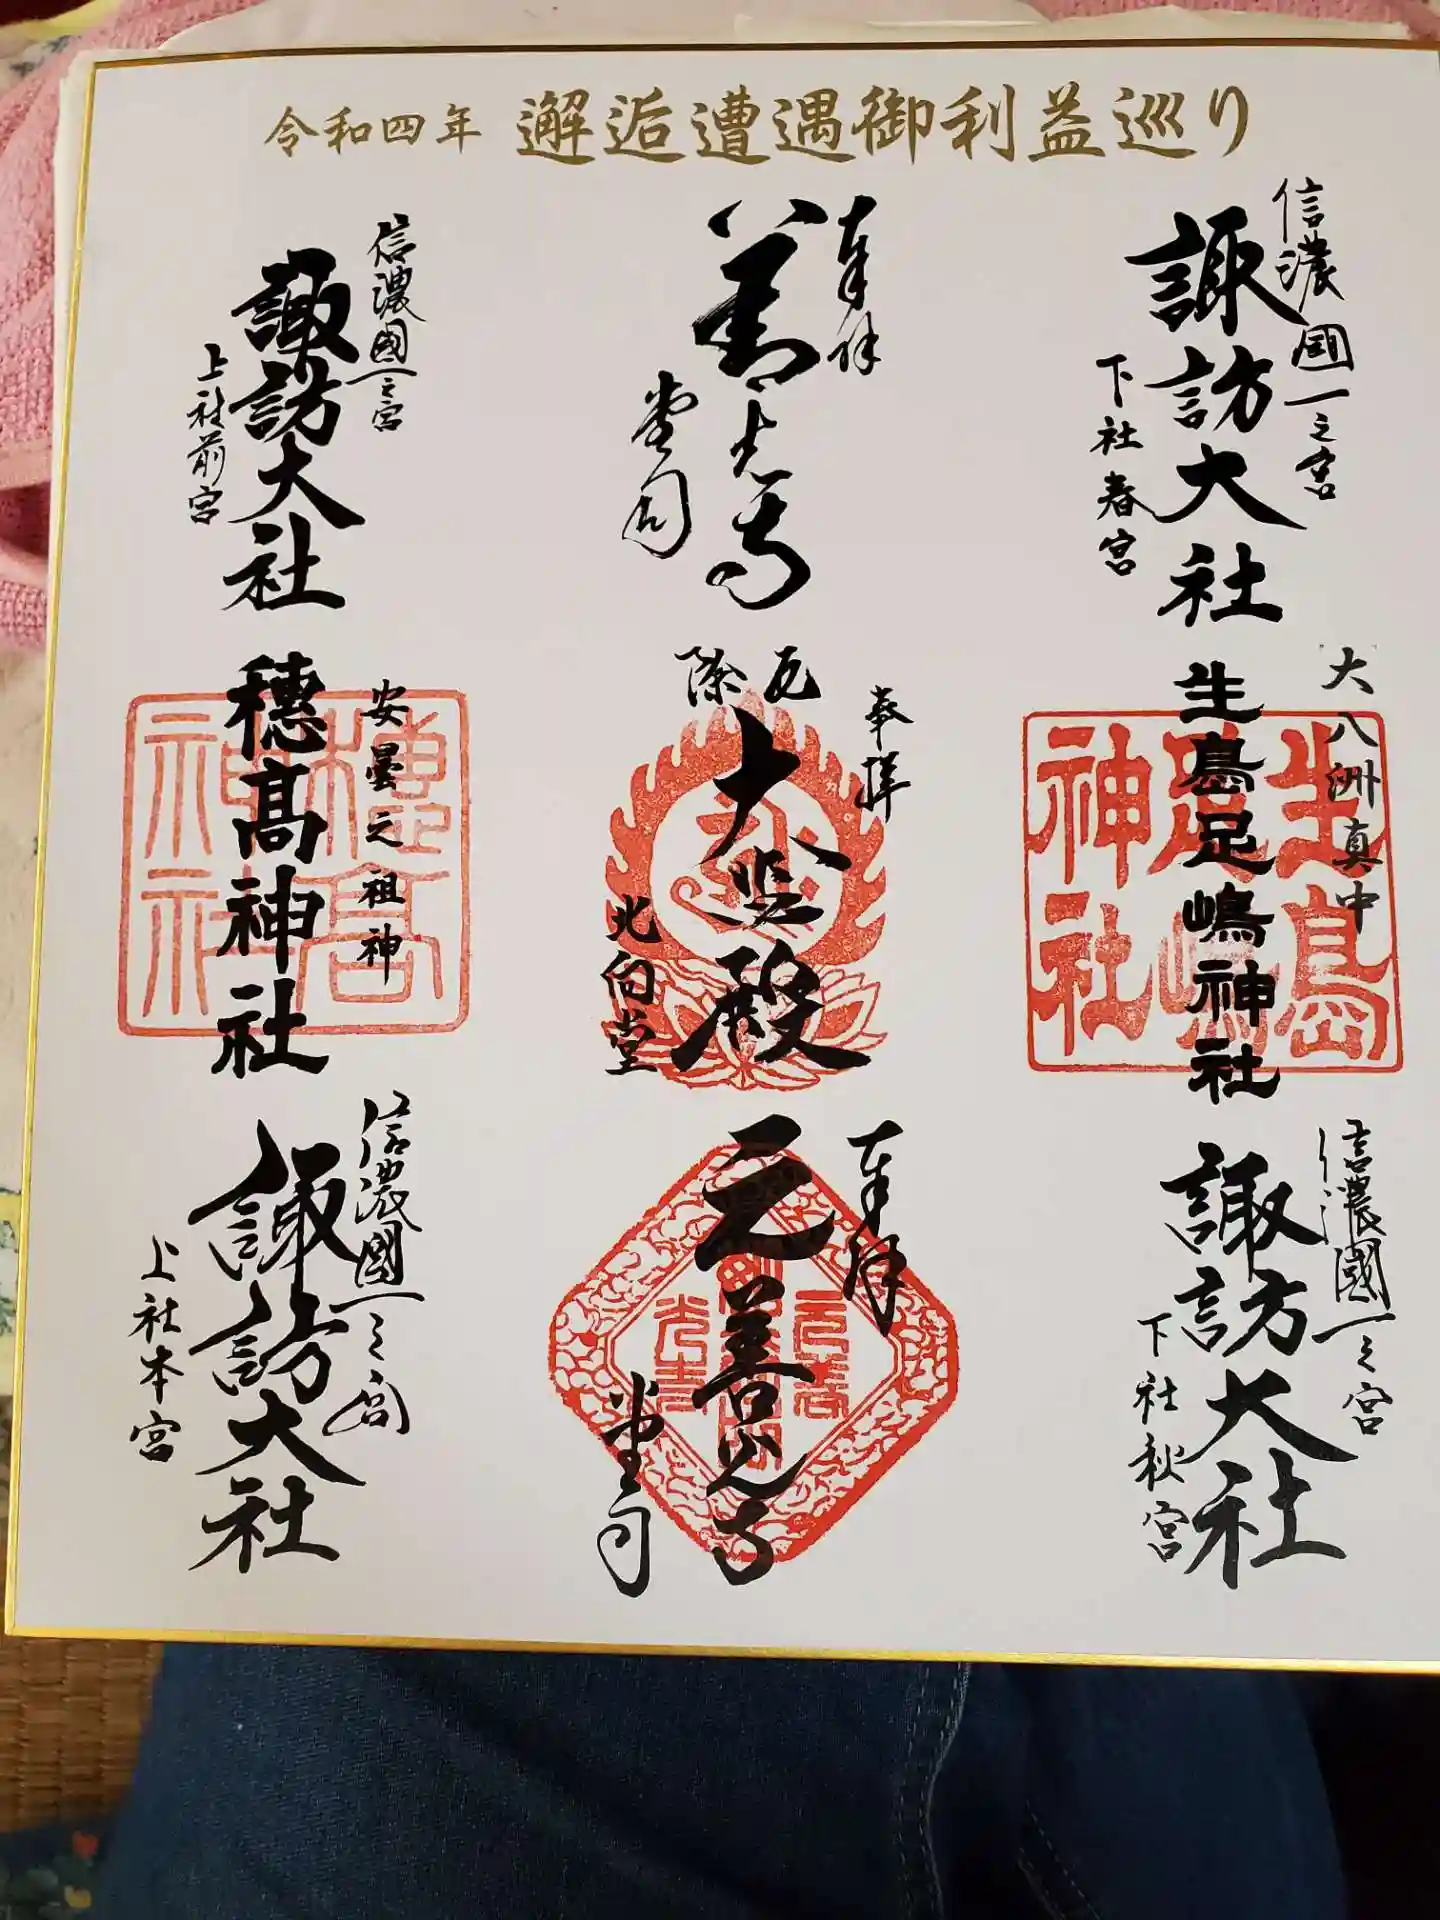 令和四年 邂逅遭遇御利益巡り
信濃國一之宮
諏訪大社
下社春宮
奉拝
善光寺
堂司
信濃國一之宮
諏訪大社
上社前宮
大八洲真中
生島足嶋神社
生島足嶋神社
奉拝
厄除
大悲殿
北向堂
安曇之祖神
穗髙神社
穂高神社
信濃國一之宮
諏訪大社
下社秋宮
奉拝
元善光寺
堂司
信濃國一之宮
諏訪大社
上社本宮